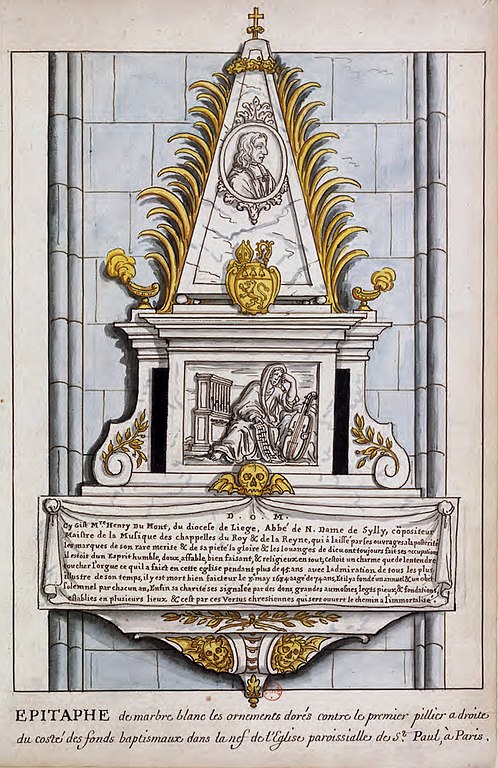 D. O. M.
Cy Gist Mre Henry Du Mont, du diocese de Liege, Abbé de N. Dame de Sylly, cõpositeur
Maistre de la Musique des chappelles du Roy & de la Reyne, qui à laissé par ses ouvrages a la posterité
les marques de son rare merite & de sa pieté la gloire & les louanges de dieu ont toujours fait ses occupations
il estoit d'un Esprit humble, doux, affable, bien faisant, & religieux en tout, cestoit un charme que de lentendre
toucher l'orgue ce quil a faict en cette eglise pendant plus de 45 ans avec ladmiration de tous les plus
illustre de son temps, il y est mort bien faicteur le 8 may 1684 aage de 74 ans, Et il y a fondé un annuel & un obit
solemnel par chacun an, Enfin sa charité ses signalée par des dons, grandes aumosnes, legs pieux, & fondations
establies en plusieurs lieux & cest par ces Vertus chrestiennes qui sera ouvert le chemin a l'immortalité.
EPITAPHE de marbre blanc les ornements dorés contre le premier pillier a droite
du costé des fonds baptismaux dans la nef de l'Eglise paroissialle de St. Paul, à Paris.